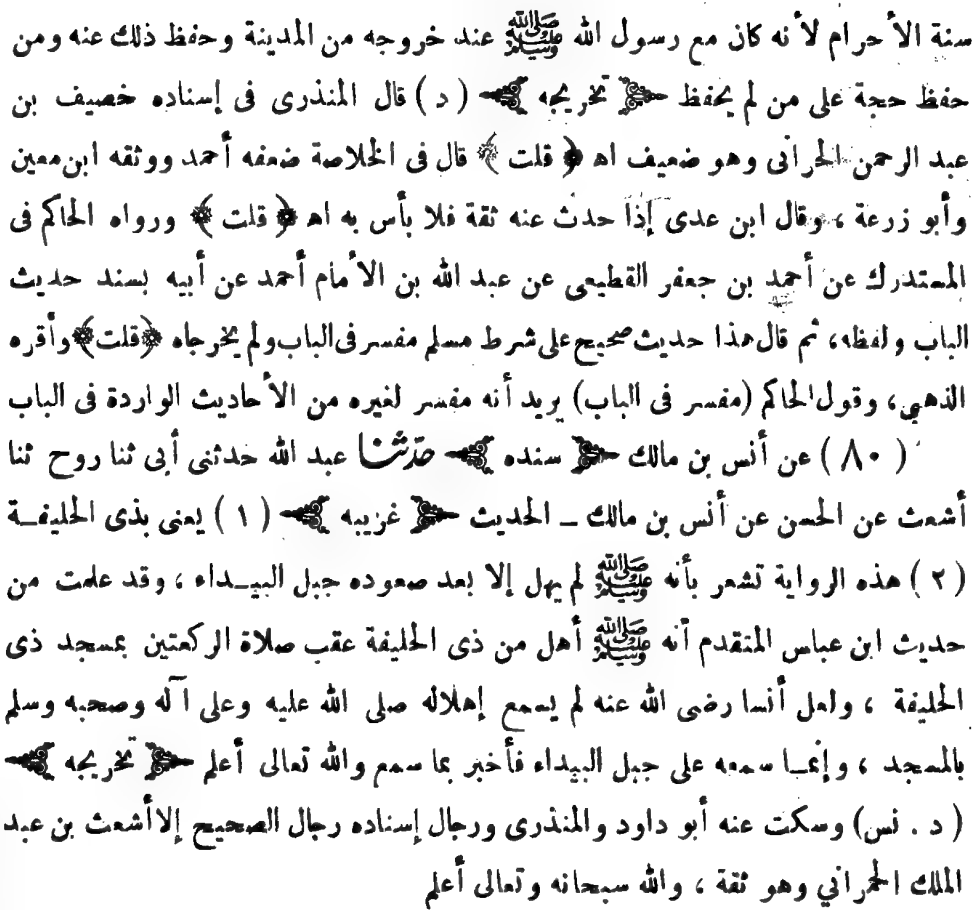 سنة الأحرام لأنه كان مع رسول الله ﷺ عند خروجه من المدينة وحفظ ذلك عنه ومن
حفظ حجة على من لم يحفظ ﴿ تخريجه ﴾ ( د ) قال المنذرى فى إسناده خصيف بن
عبد الرحمن الحرانى وهو ضعيف اهـ ﴿ قلت ﴾ قال فى الخلاصة ضعفه أحمد ووثقه ابن معين
وأبو زرعة ، وقال ابن عدى إذا حدث عنه ثقة فلا بأس به اهـ ﴿ قلت ﴾ ورواه الحاكم فى
المستدرك عن أحمد بن جعفر القطيعى عن عبد الله بن الأمام أحمد عن أبيه بسند حديث
الباب ولفظه، ثم قال هذا حديث صحيح على شرط مسلم مفسر فى الباب ولم يخرجاه ﴿قلت﴾ وأقره
الذهبي، وقول الحاكم (مفسر فى الباب) يريد أنه مفسر لغيره من الأحاديث الواردة فى الباب
( ٨٠ ) عن أنس بن مالك ﴿ سنده ﴾ حدثنا عبد الله حدثنى أبى ثنا روح ثنا
أشعث عن الحسن عن أنس بن مالك ــ الحديث ﴿ غريبه ﴾ ( ١ ) يعنى بذى الحليفـة
( ٢ ) هذه الرواية تشعر بأنه ﷺ لم يهل إلا بعد صعوده جبل البيـداء ، وقد علمت من
حديث ابن عباس المتقدم أنه ﷺ أهل من ذى الحليفة عقب صلاة الركعتين بمسجد ذى
الحليفة ، ولعل أنسا رضى الله عنه لم يسمع إهلاله صلى الله عليه وعلى آله وصحبه وسلم
بالمسجد ، وإنمـا سمعه على جبل البيداء فأخبر بما سمع والله تعالى أعلم ﴿ تخريجه ﴾
( د . نس) وسكت عنه أبو داود والمنذرى ورجال إسناده رجال الصحيح إلا أشعث بن عبد
الملك الحمراني وهو ثقة ، والله سبحانه وتعالى أعلم